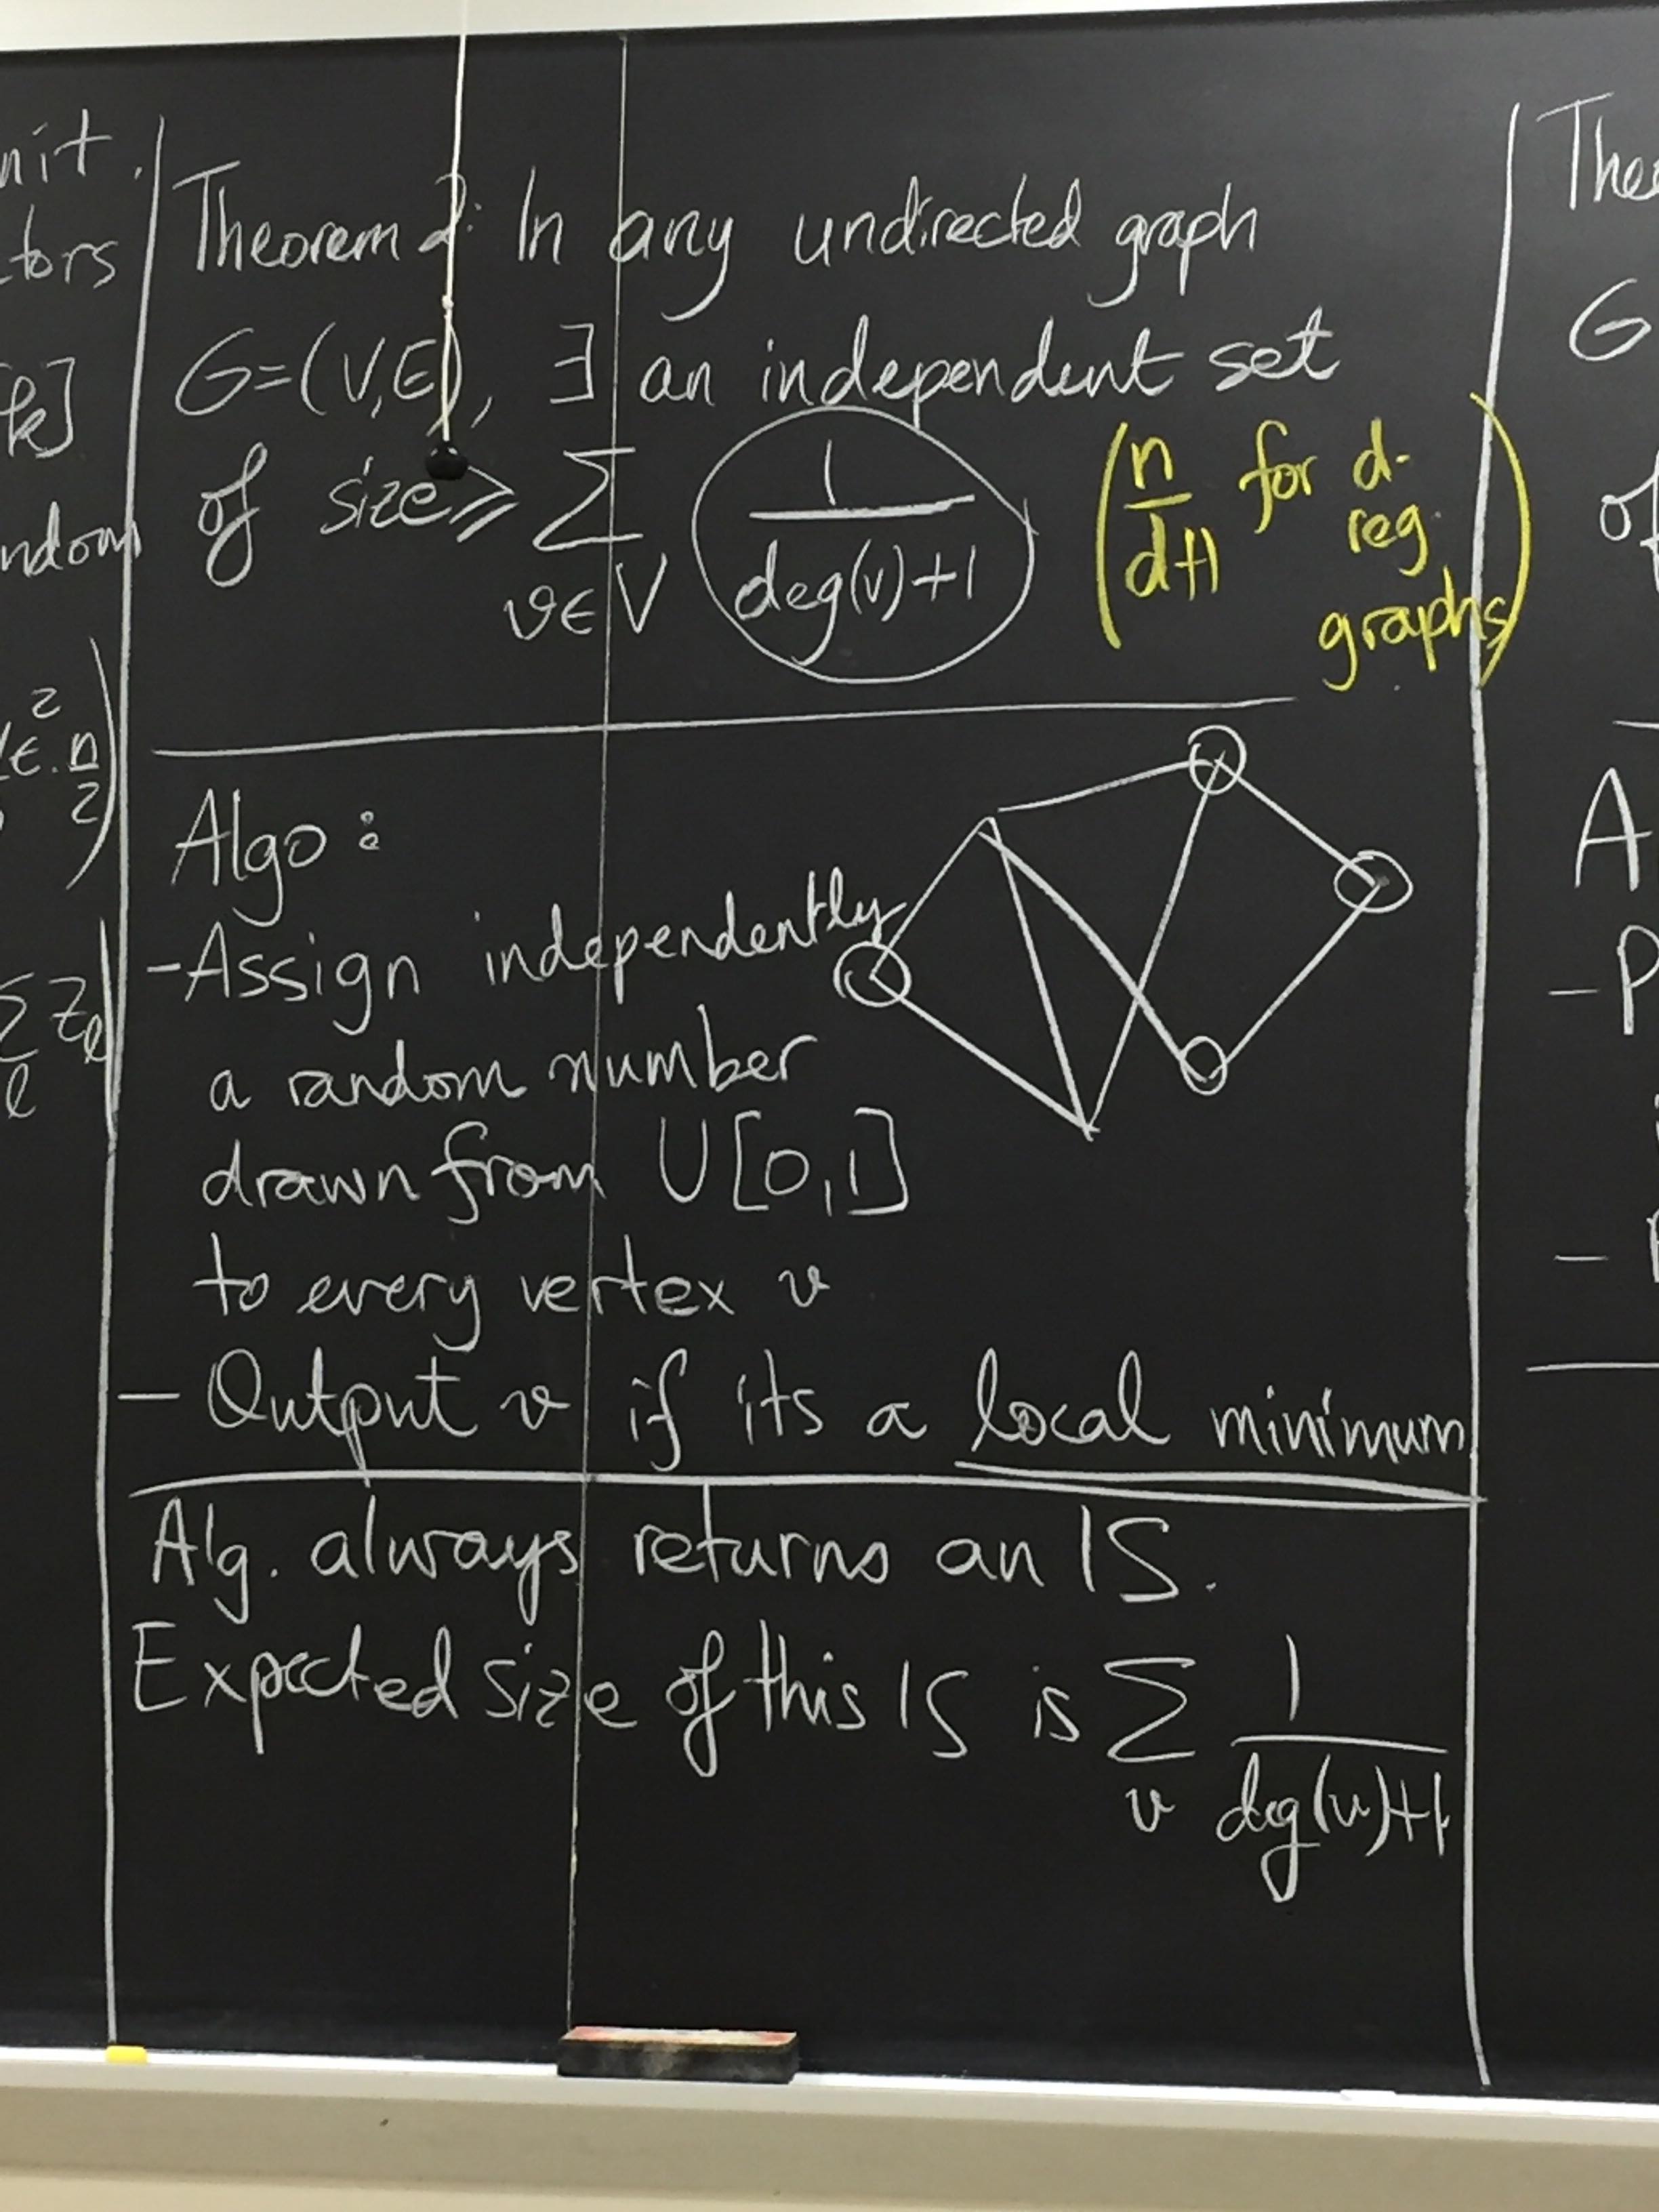 nit.
tors
k]
ndom
2
ε. n
2
Σ Zℓ
ℓ
Theorem 2: In any undirected graph
G=(V,E), ∃ an independent set
of size ≥ Σ 1
v∈V deg(v)+1
(n for d-
d+1 reg.
graphs)
Algo:
-Assign independently
a random number
drawn from U[0,1]
to every vertex v
- Output v if its a local minimum
Alg. always returns an IS.
Expected size of this IS is Σ 1
v deg(v)+1
Theo
G
of
A
-P
-